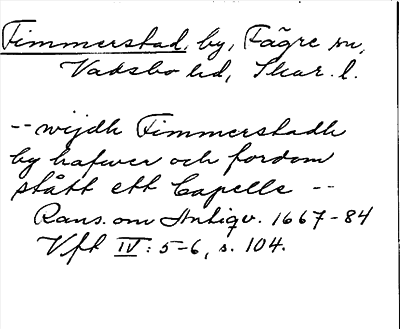 Timmerstad, by, Fägre sn,
Vadsbo hd, Skar. l.
-- wijdh Timmerstadh
by hafwer och fordom
stått ett Capelle --
Rans. om Antiqv. 1667-84
Vft IV: 5-6, s. 104.